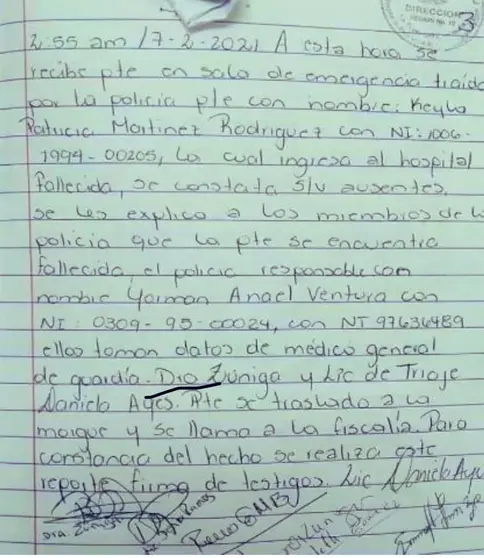 DIRECCION
3
2:55 am 17-2-2021 A esta hora se
recibe pte en sala de emergencia traido
por la policia pte con nombre: Keyla
Patricia Martinez Rodriguez con NI: 1006-
1994-00205, la cual ingresa al hospital
fallecida, se constata s/v ausentes.
se les explica a los miembros de l
policia que la pte se encuentra
fallecida, el policia responsable con
nombre Yarman Anael Ventura con
NI: 0309-95-00024, con NT 97636489
ellos toman datos de médico general
de guardia. Dra Zuniga y Lic de Triaje
Daniela Ayes. Pte se traslada a la
morgue y se llama a la fiscalia. Para
constancia del hecho se realiza este
reporte firma de testigos. Lic Daniela Aye
Dra. Zuniga